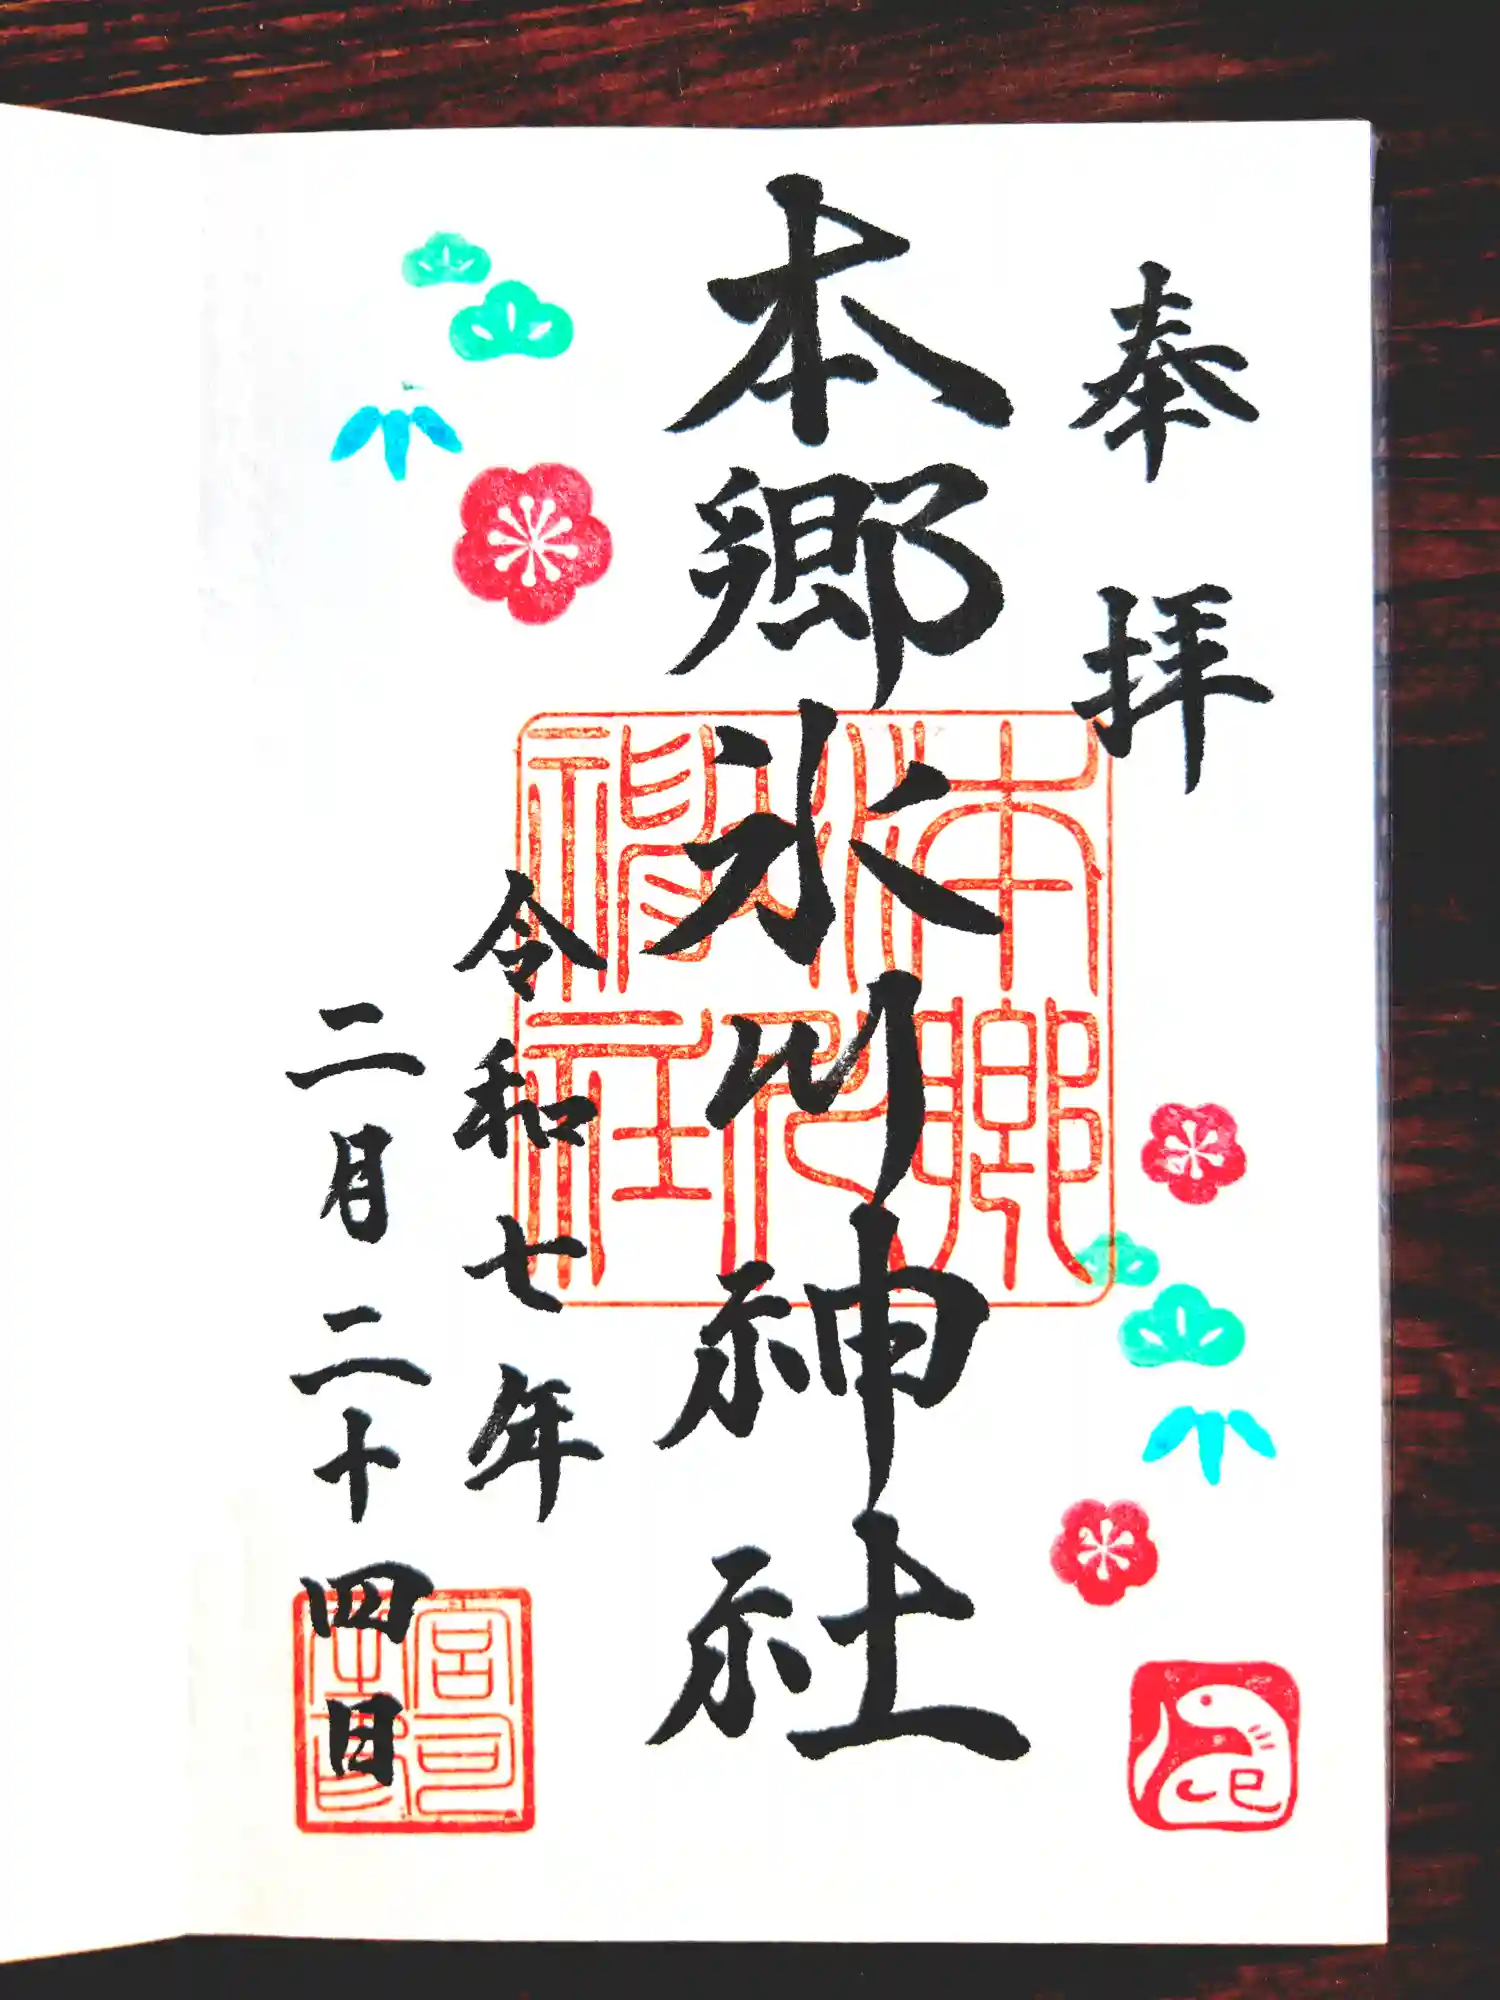 奉拝
本郷氷川神社
本郷氷川神社
令和七年
二月二十四日
巳